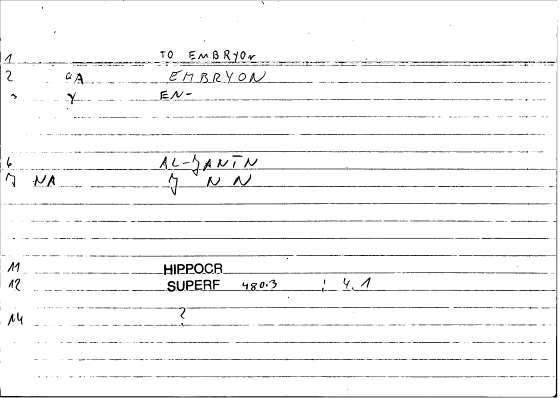 1 TO EMBRYON
2 aA EMBRYON
3 γ EN-
6 AL-JANĪN
J NA J N N
11 HIPPOCR
12 SUPERF 480.3 : 4.1
14 ?